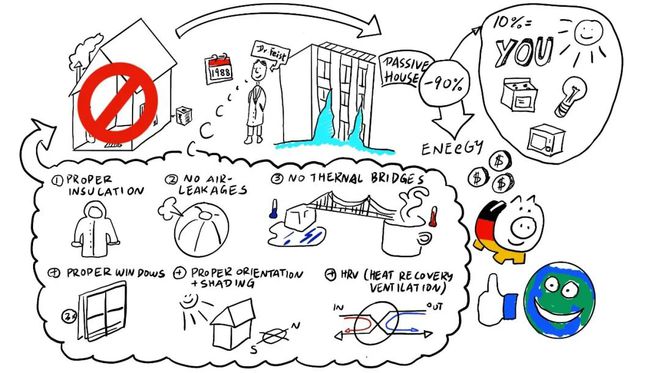 1988
Dr Feist
PASSIVE
HOUSE
-90%
10% =
YOU
ENERGY
$
$
$
① PROPER
INSULATION
② NO AIR-
LEAKAGES
③ NO THERMAL BRIDGES
PROPER WINDOWS
3x
PROPER ORIENTATION
+ SHADING
N
S
HRV (HEAT RECOVERY
VENTILATION)
IN
OUT